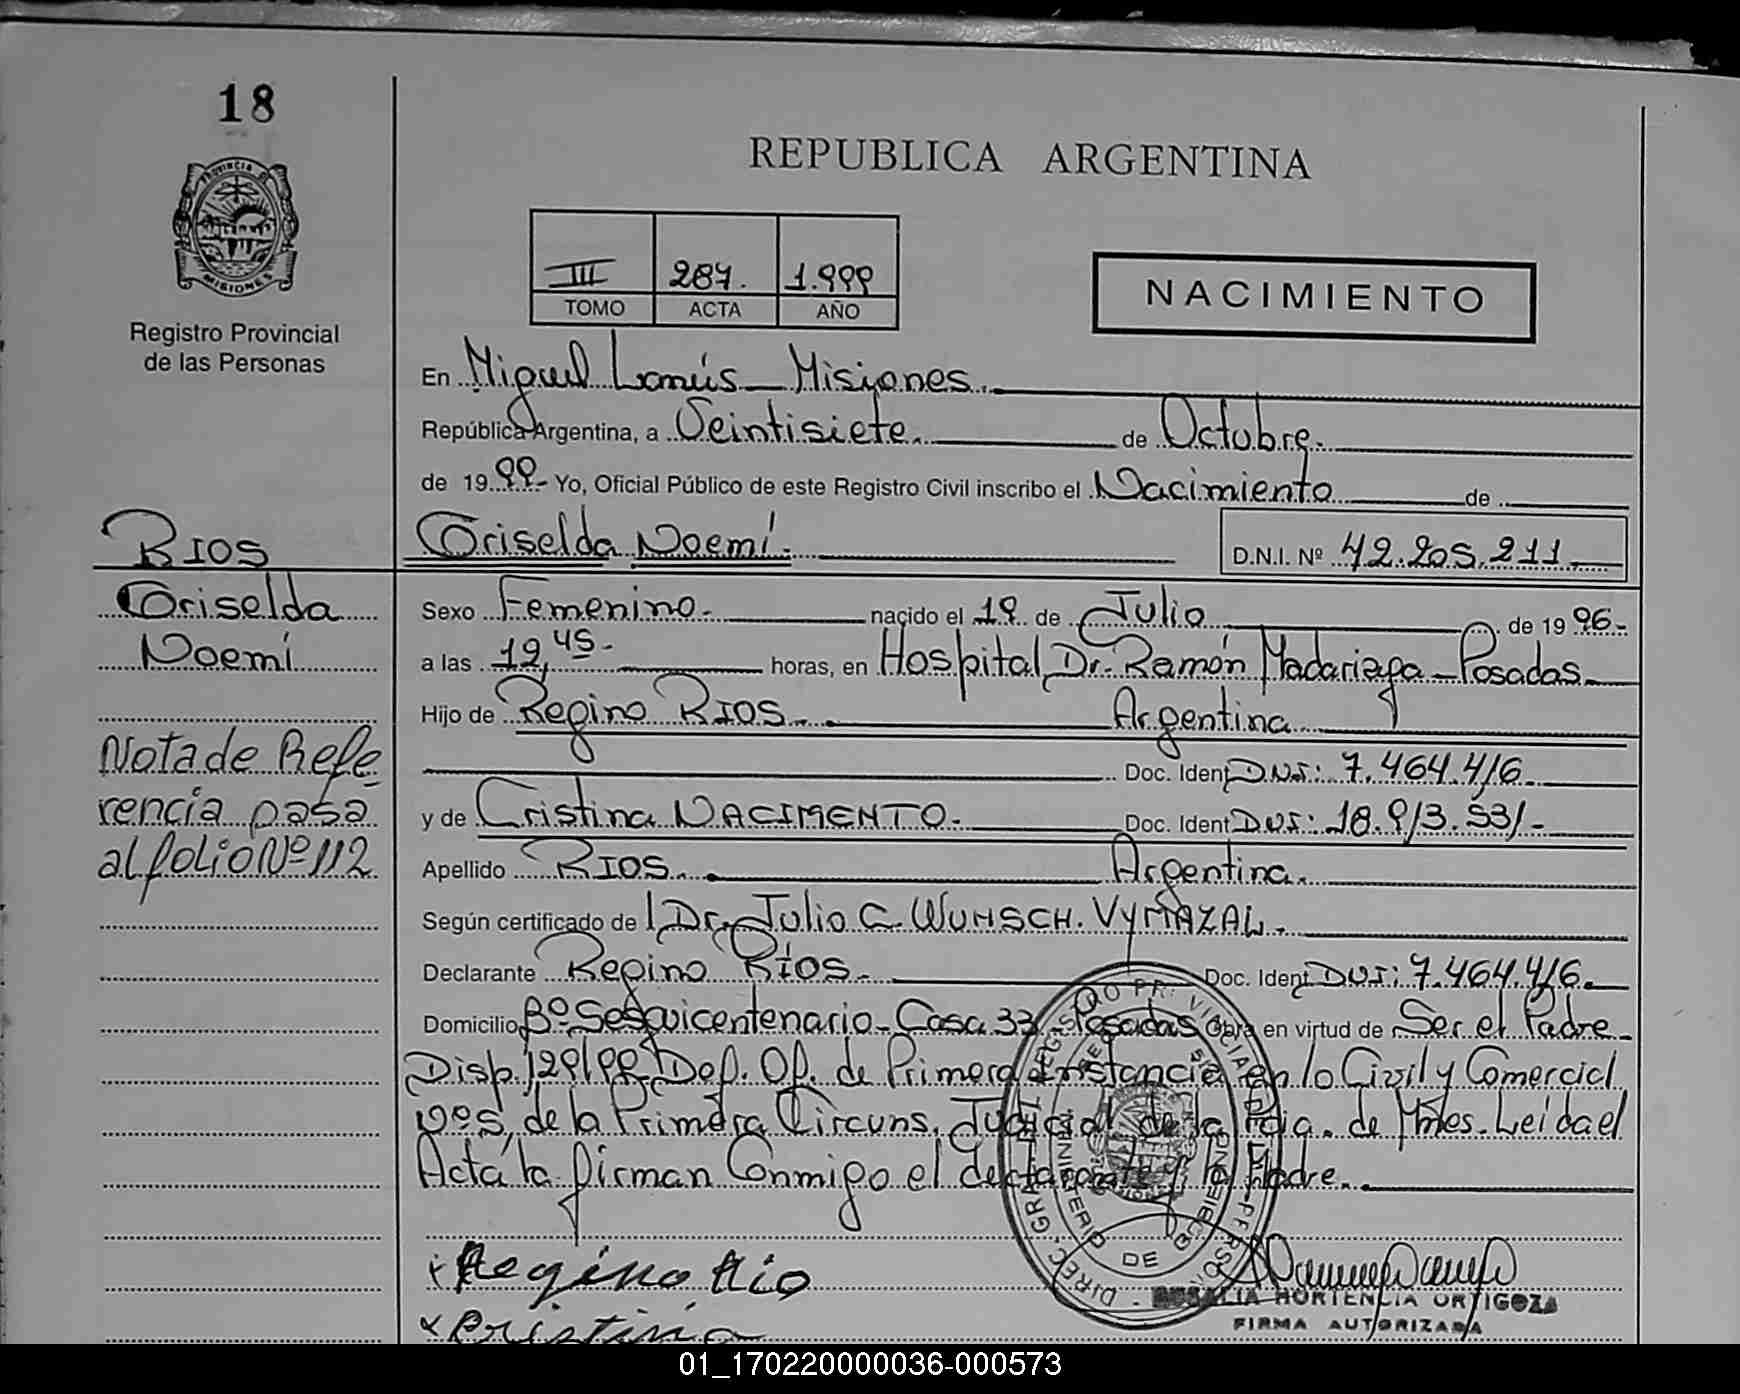 18
PROVINCIA DE
MISIONES
Registro Provincial
de las Personas
REPUBLICA ARGENTINA
III 287. 1.999
TOMO ACTA AÑO
NACIMIENTO
En Miguel Lanús - Misiones.
República Argentina, a Veintisiete. de Octubre.
de 1999- Yo, Oficial Público de este Registro Civil inscribo el Nacimiento de
Griselda Noemí. D.N.I. Nº 42.205.211.
RIOS
Griselda
Noemí
Nota de Refe
rencia pasa
al folio Nº 112
Sexo Femenino. nacido el 19 de Julio de 1996-
a las 19,45- horas, en Hospital Dr. Ramón Madariaga - Posadas
Hijo de Regino RIOS. Argentina
Doc. Ident D.N.I: 7.464.416
y de Cristina NACIMENTO. Doc. Ident D.N.I: 18.913.531-
Apellido RIOS. Argentina.
Según certificado de Dr. Julio C. WUNSCH. VYMAZAL.
Declarante Regino Ríos. Doc. Ident D.N.I: 7.464.416.
Domicilio Bº Sesquicentenario - Casa 33 - Posadas Obra en virtud de Ser el Padre
Disp. 129/99 Def. Of. de Primera Instancia en lo Civil y Comercial
Nº5, de la Primera Circuns. Judicial de la Pcia. de Mnes. Leída el
Acta la firman Conmigo el declarante y la Madre.
Regino Rio
Cristina
MINISTERIO DE GOBIERNO
ROSALIA HORTENCIA ORTIGOZA
FIRMA AUTORIZADA
01_170220000036-000573